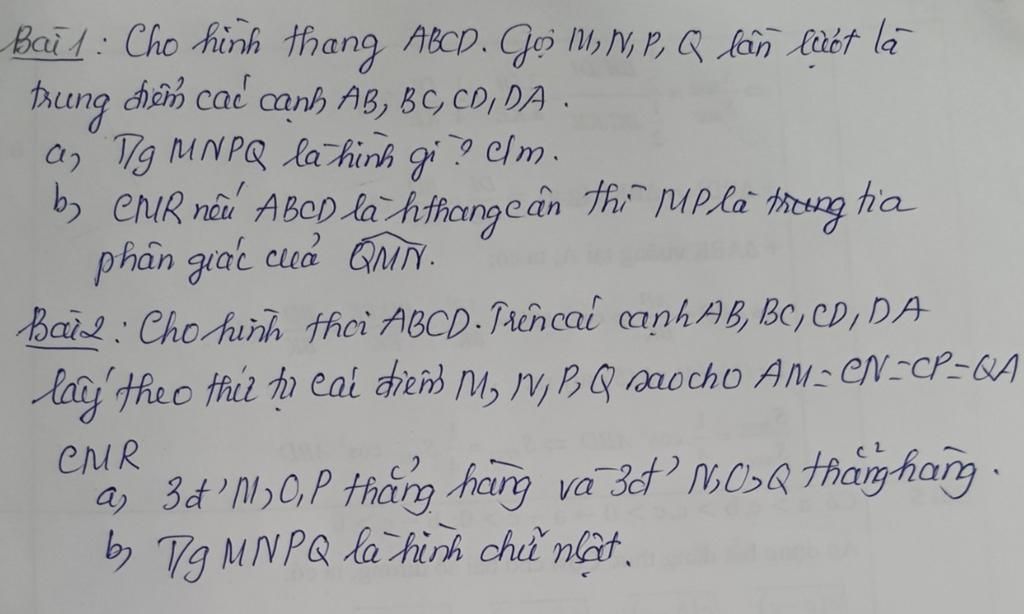 Bài 1: Cho hình thang ABCD. Gọi M, N, P, Q lần lượt là
trung điểm các cạnh AB, BC, CD, DA.
a, T/g MNPQ là hình gì? C/m.
b, CMR nếu ABCD là hthang cân thì MP là tia
phân giác của QMN.
Bài 2: Cho hình thoi ABCD. Trên các cạnh AB, BC, CD, DA
lấy theo thứ tự các điểm M, N, P, Q sao cho AM = CN = CP = QA
CMR
a, 3đ' M, O, P thẳng hàng và 3đ' N, O, Q thẳng hàng.
b, T/g MNPQ là hình chữ nhật.